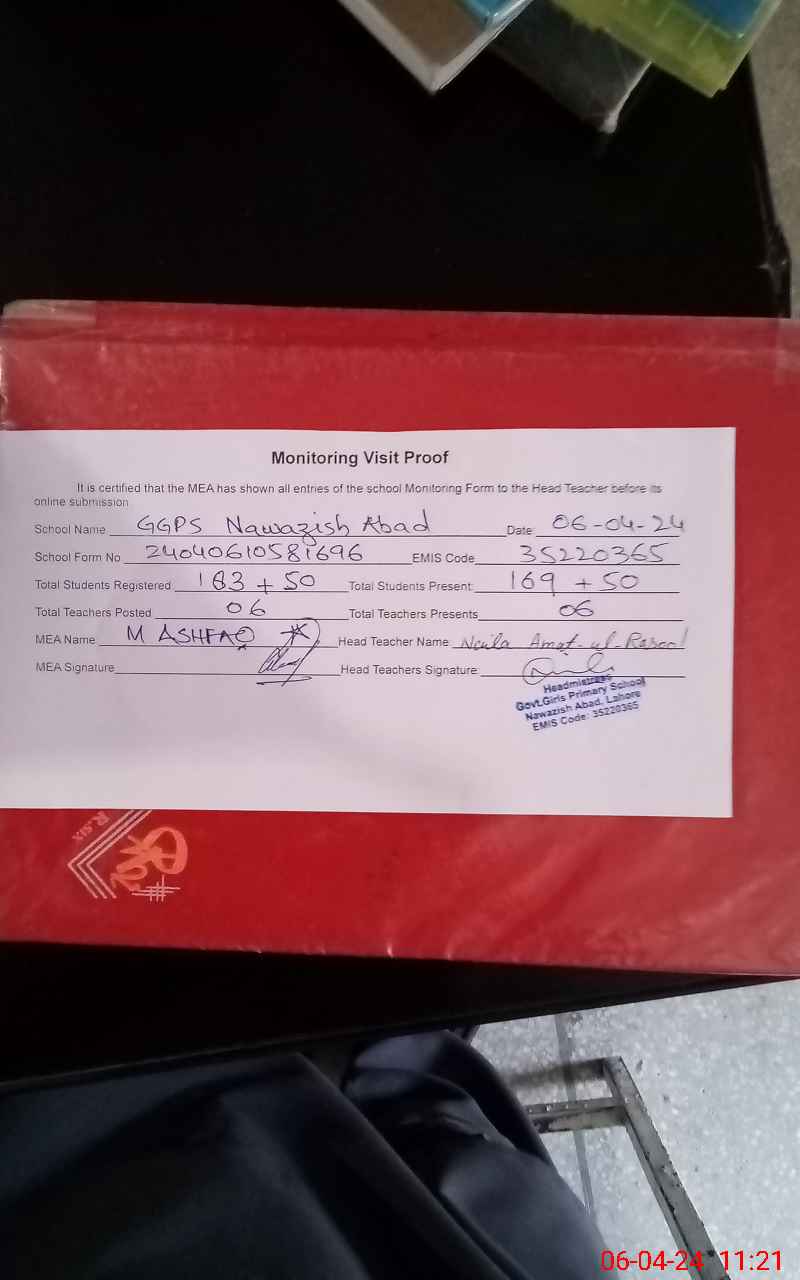 Monitoring Visit Proof
It is certified that the MEA has shown all entries of the school Monitoring Form to the Head Teacher before its
online submission
School Name GGPS Nawazish Abad Date 06-04-24
School Form No 24040610581696 EMIS Code 35220365
Total Students Registered 183 + 50 Total Students Present: 169 + 50
Total Teachers Posted 06 Total Teachers Presents 06
MEA Name M ASHFAQ Head Teacher Name Neila Amat-ul-Rasool
MEA Signature Head Teachers Signature
Headmistress
Govt.Girls Primary School
Nawazish Abad, Lahore
EMIS Code: 35220365
R.SIX
06-04-24 11:21